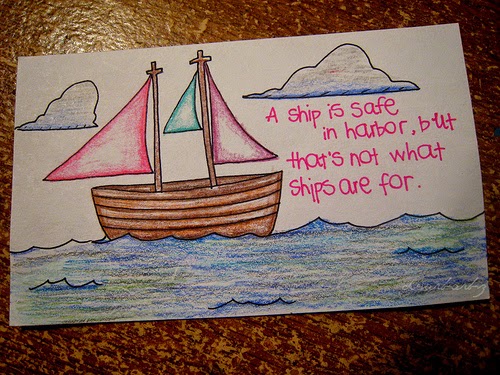 A ship is safe
in harbor, but
that's not what
ships are for.